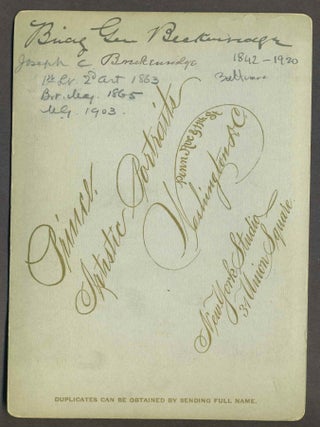 Brig Gen Breckenridge
Joseph C Breckenridge 1842–1920
1st Lt. 2d Art 1863 Baltimore
Bvt. Maj. 1865
M.G. 1903.
Prince.
Artistic Portraits
Penn. Ave & 11th St.
Washington D.C.
New York Studio
31 Union Square
DUPLICATES CAN BE OBTAINED BY SENDING FULL NAME.